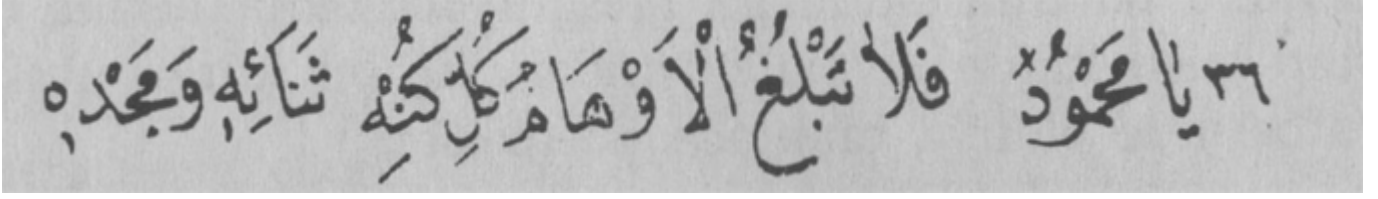 ٣٦ يَا مَحْمُوْدُ فَلَا تَبْلُغُ الْاَوْهَامُ كُلِّ كُنْهِ ثَنَائِهٖ وَمَجْدِهٖ